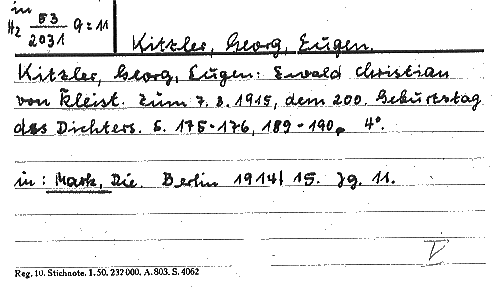 in
Hz 53/2031 9=11
Kitzler, Georg, Eugen.
Kitzler, Georg, Eugen: Ewald Christian
von Kleist. Zum 7. 3. 1915, dem 200. Geburtstag
des Dichters. S. 175-176, 189-190, 4°.
in: Mark, Die. Berlin 1914/15. Jg. 11.
V
Reg. 10. Stichnote. 1. 50. 232 000. A. 803. S. 4062